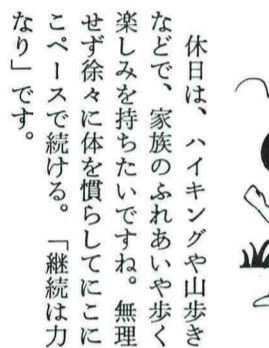 休日は、ハイキングや山歩き
などで、家族のふれあいや歩く
楽しみを持ちたいですね。無理
せず徐々に体を慣らしてにこに
こペースで続ける。「継続は力
なり」です。